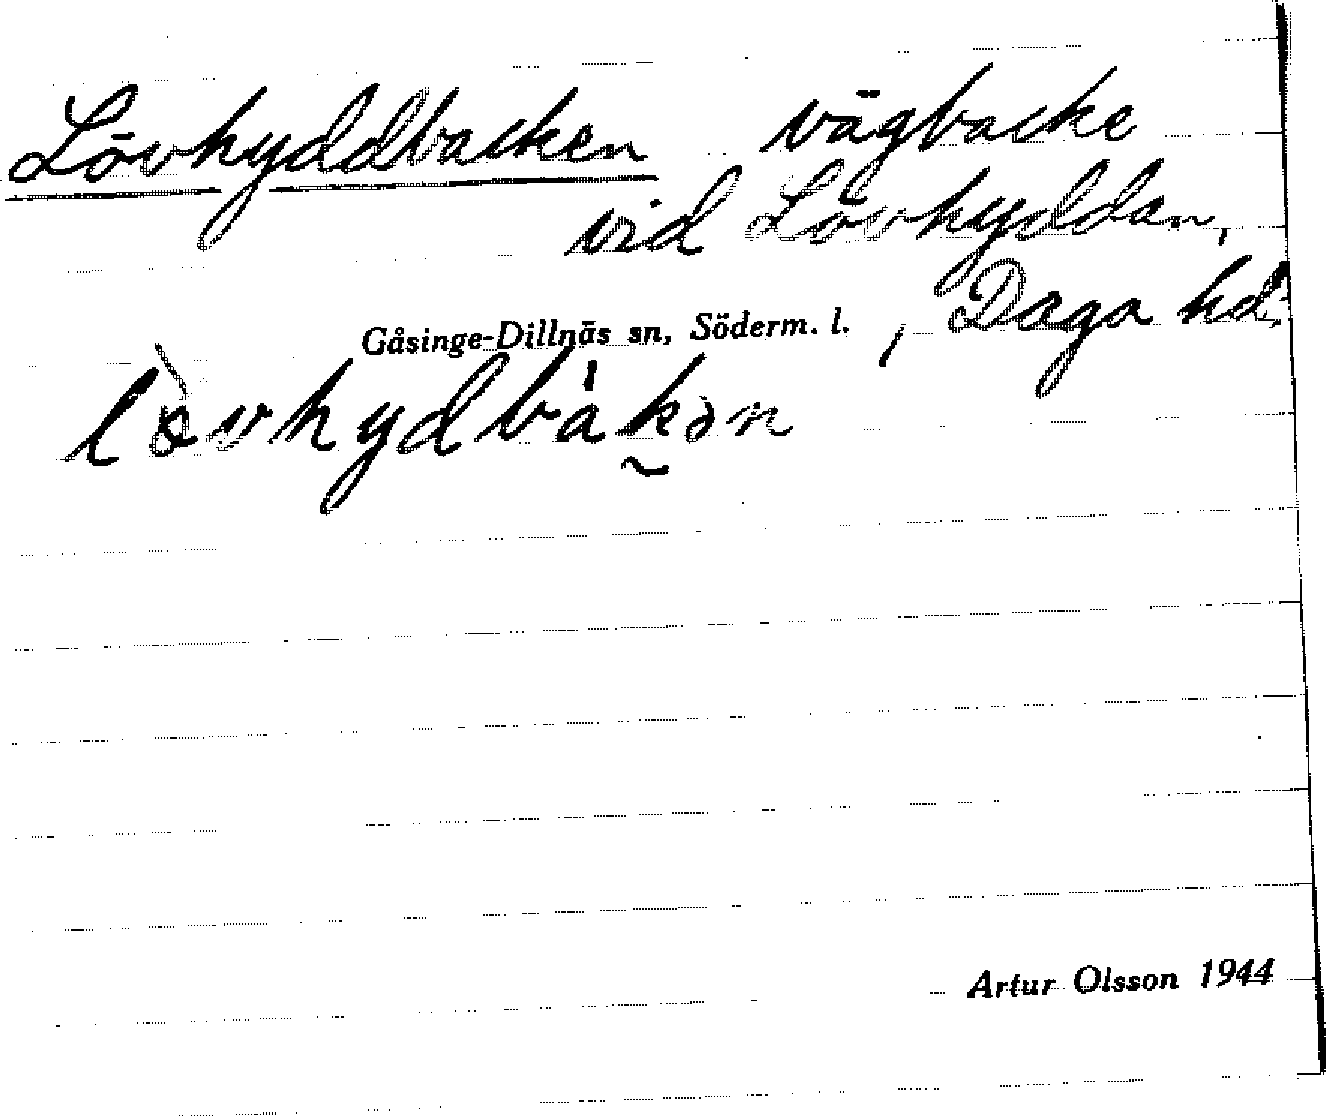 Lövhyddbacken vägbacke
vid Lövhyddan,
Gåsinge-Dillnäs sn, Söderm. l. , Daga hd.
lòvhydbákən
Artur Olsson 1944